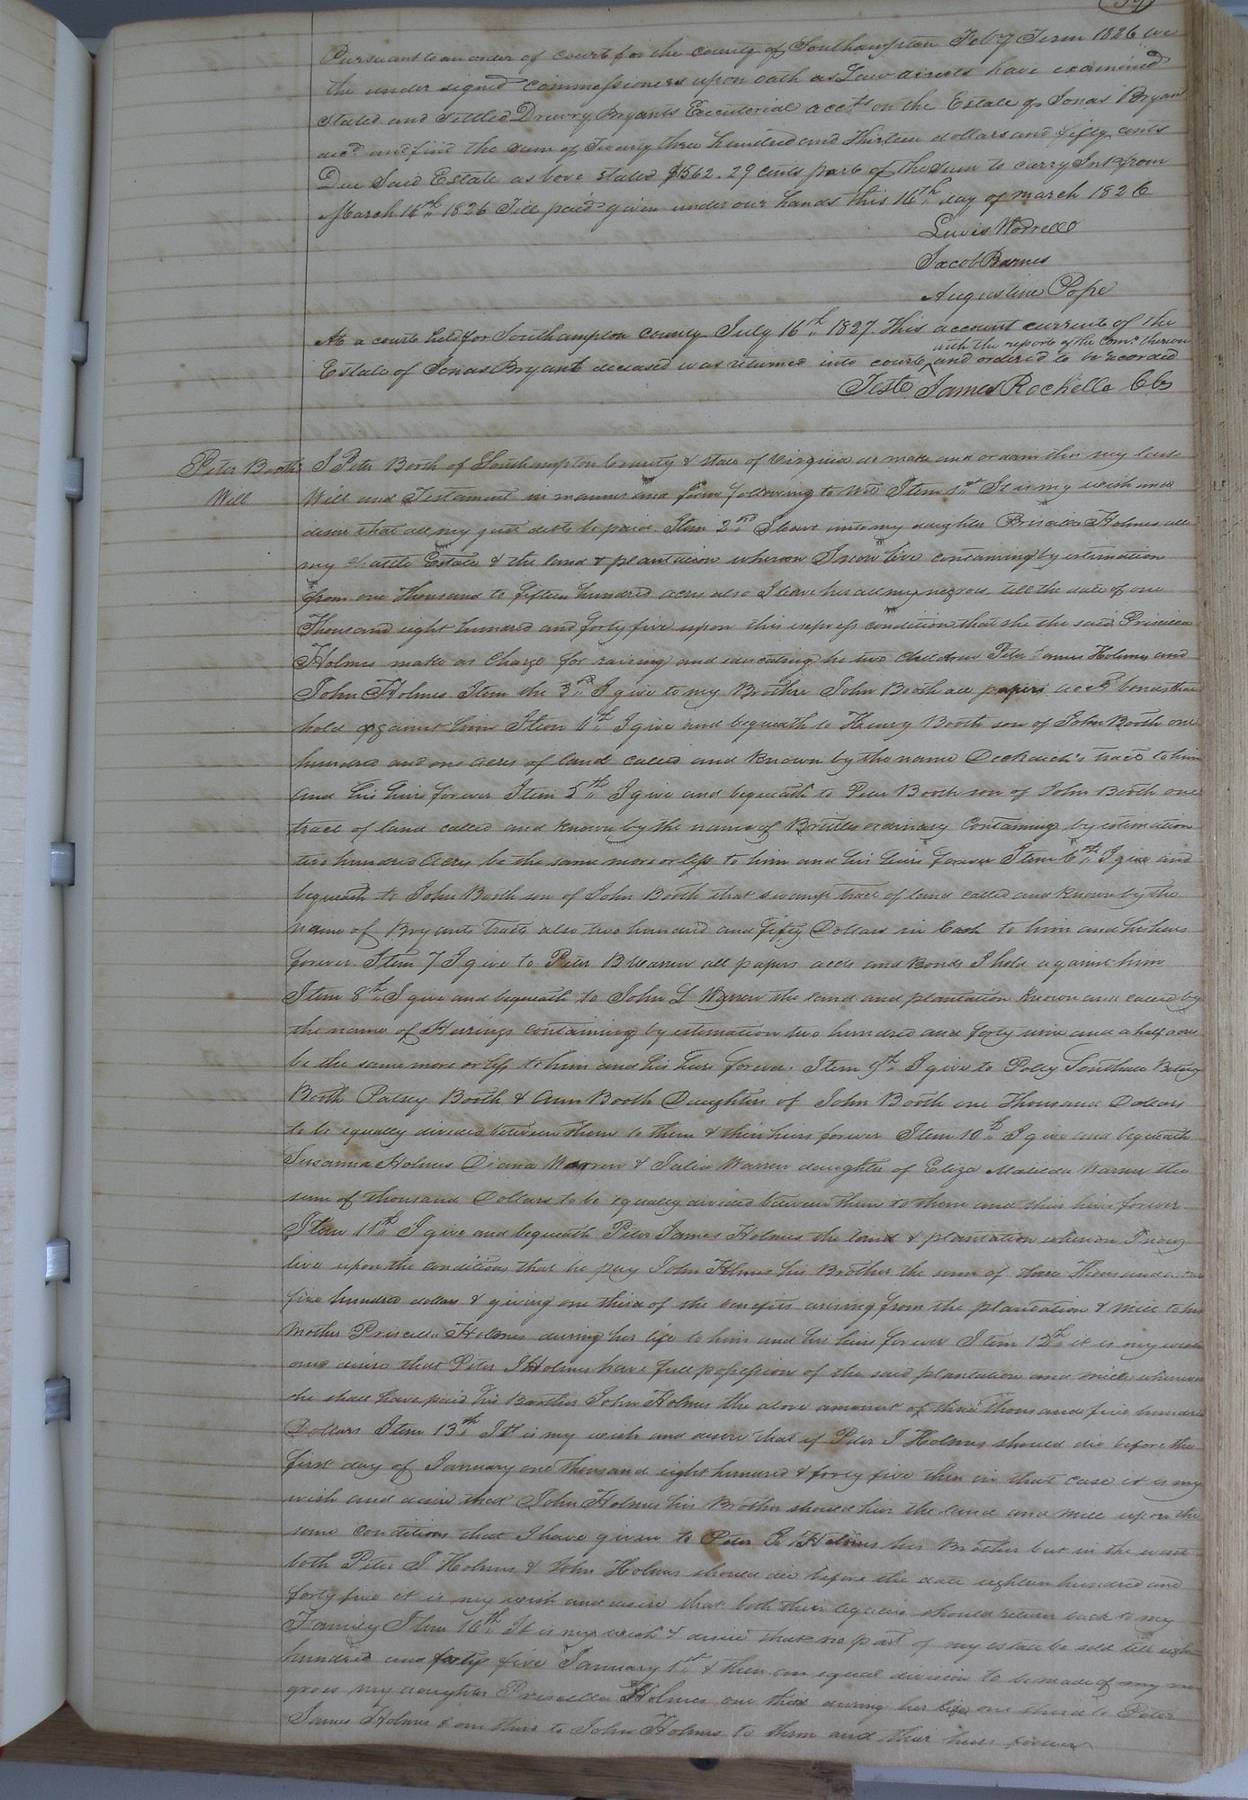 Pursuant to an order of court for the county of Southampton Feby Term 1826 we
the under signed commissioners upon oath as Law directs have examined
stated and settled Drewry Bryants Executorial accts on the Estate of Jonas Bryant
decd and find the sum of Twenty three hundred and Thirteen dollars and fifty cents
Due Said Estate as bove stated $1562.29 cents part of the sum to carry Int from
March 16th 1826 Till paid given under our hands this 16th day of march 1826
Lewis Worrell
Jacob Barnes
Augustine Pope
At a court held for Southampton county July 16th 1827. This account current of the
with the reports of the Coms thereon
Estate of Jonas Bryant deceased was returned into court and ordered to be recorded
Teste James Rochelle CC
Peter Booths I Peter Booth of Southampton County & state of Virginia do make and ordain this my last
Will Will and Testament in manner and form following to wit Item 1st It is my wish and
desire that all my just debts be paid. Item 2nd I leave unto my daughter Priscilla Holmes all
my Estate & the land & plantation whereon I now live containing by estimation
from one thousand to fifteen hundred acres also I leave her all my negroes till the date of one
Thousand eight hundred and forty five upon this express condition that she the said Priscilla
Holmes make no Charge for raising and educating he two children Peter James Holmes and
John Holmes Item the 3rd I give to my Brother John Booth all papers acct bonds that
hold against him Item 4th I give and bequeath to Henry Booth son of John Booth one
hundred and one acres of land called and known by the name tract to him
and his heirs forever Item 5th I give and bequeath to Peter Booth son of John Booth one
tract of land called and known by the name of ordinary Containing by estimation
two hundred Acres be the same more or less to him and his heirs forever Item 6th I give and
bequeath to John Booth son of John Booth that swamp tract of land called and known by the
name of Bryants Tract also two hundred and fifty Dollars in Cash to him and his heirs
forever Item 7 I give to Peter B Warren all papers accts and Bonds I hold against him
Item 8th I give and bequeath to John L Warren the land and plantation known and called by
the name of Herrings containing by estimation two hundred and forty nine and a half acres
be the same more or less to him and his heirs forever. Item 9th I give to Polly Southall Betsy
Booth Patsey Booth & Ann Booth Daughters of John Booth one Thousand Dollars
to be equally divided between them to them & their heirs forever Item 10th I give and bequeath
Susanna Holmes Diana Warren & Julia Warren daughter of Eliza Matilda Warren the
sum of thousand Dollars to be equally divided between them to them and their heirs forever
Item 11th I give and bequeath Peter James Holmes the land & plantation whereon I now
live upon the conditions that he pay John Holmes his Brother the sum of three Thousand
five hundred dollars & giving one third of the benefits arising from the plantation & mill to his
mother Priscilla Holmes during her life to him and his heirs forever Item 12th it is my wish
and desire that Peter J Holmes have full possession of the said plantation and mill whenever
he shall have paid his Brother John Holmes the above amount of three thousand five hundred
Dollars Item 13th It is my wish and desire that if Peter J Holmes should die before the
first day of January one thousand eight hundred & forty five then in that case it is my
wish and desire that John Holmes his Brother should heir the land and mill upon the
same conditions that I have given to Peter J Holmes his Brother but in the event
both Peter J Holmes & John Holmes should die before the date eighteen hundred and
forty five it is my wish and desire that both their legacies should return back to my
Family Item 14th It is my wish & desire that no part of my estate be sold till eighteen
hundred and forty five January 1st & then an equal division to be made of my ne
groes my daughter Priscilla Holmes one third during her life one third to Peter
James Holmes & one third to John Holmes to them and their heirs forever